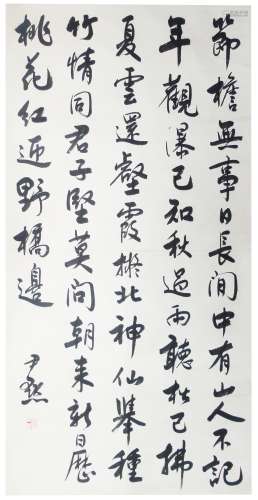 節檐無事日長間中有山人不記
年觀瀑已知秋過雨聽松已拂
夏雲還壑霞擬北神仙舉種
竹情同君子堅莫問朝來新日歷
桃花紅迎野橋邊
尹默